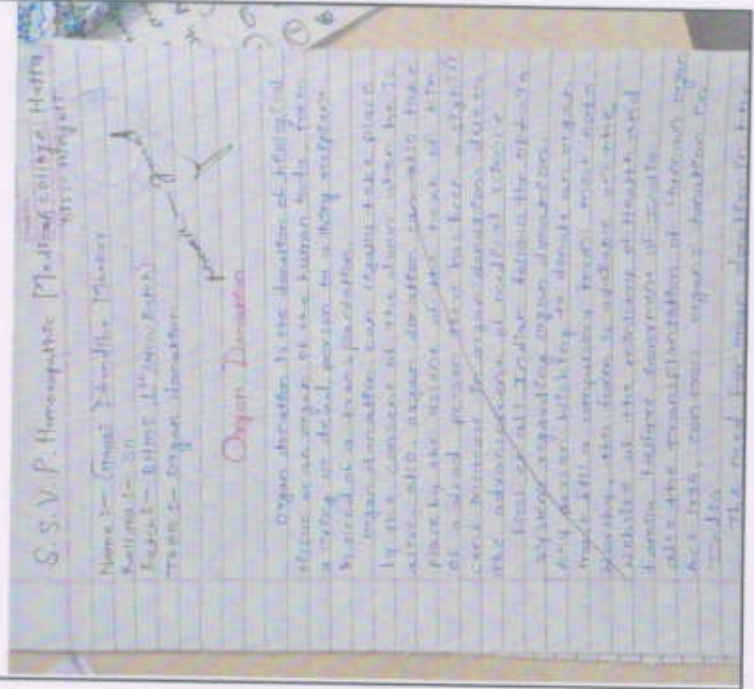 S.S.V.P. Homoeopathic Medical college Hatta
Dist- Hingoli.
Name :-
Roll no :- 30
BHMS 1st (New Batch)
Topic :- Organ donation
Organ Donation
Organ donation is the donation of biological
tissue or an organ of the human body, from
a living or dead person to a living recipient
in need of a transplantation
organ donation can legally take place
by the consent of the donor when he is
alive also organ donation can also take
place by the assent of the next of kin
of a dead person there has been a signifi
cant increase in organ donations due to
the advancement of medical science
First of all Indian follows the opt-in
system regarding organ donation.
Any person wishing to donate an organ
must fill a compulsory form most note
worthy, this form is available on the
website of the ministry of Health and
Family Welfare Government of India
also the Transplantation of Human organ
Act 19 controls organs donation in
India
The need for organ donation in the